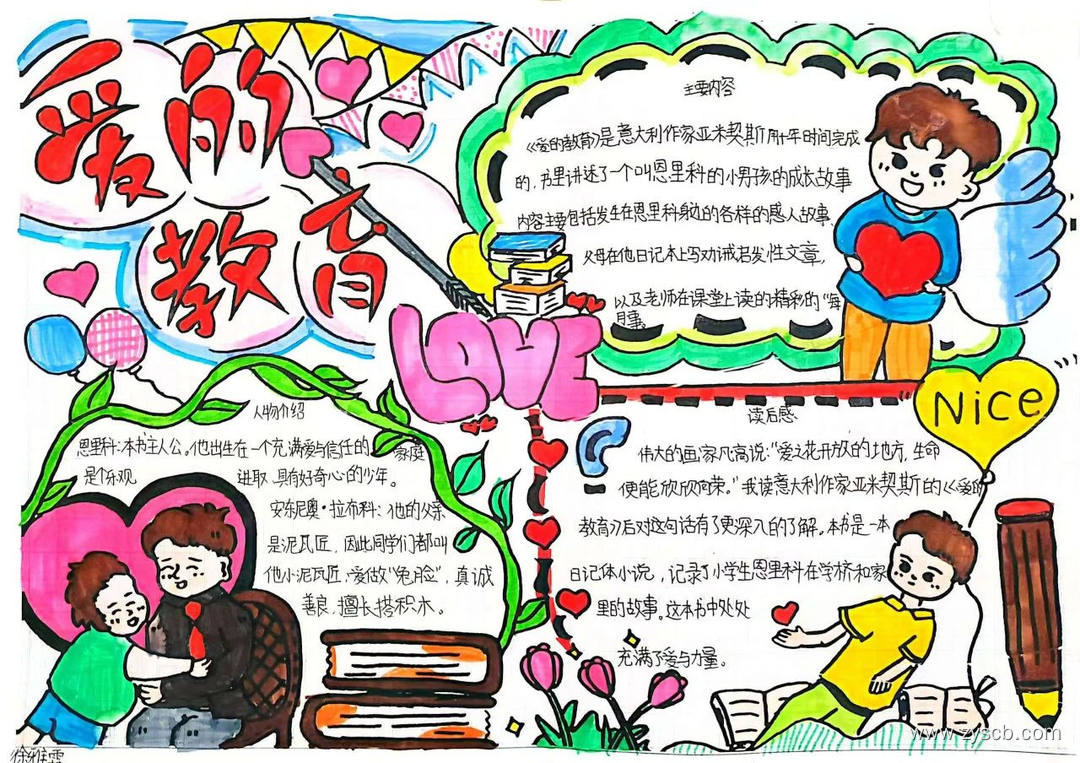 爱的
教育
LOVE
主要内容
《爱的教育》是意大利作家亚米契斯用十年时间完成
的，书里讲述了一个叫恩里科的小男孩的成长故事
内容主要包括发生在恩里科身边的各样的感人故事、
父母在他日记本上写劝诫启发性文章，
以及老师在课堂上读的精彩的“每
月事
人物介绍
恩里科：本书主人公，他出生在一个充满爱与信任的家庭
是个乐观 进取 具有好奇心的少年。
安东尼奥·拉布科：他的父亲
是泥瓦匠，因此同学们都叫
他小泥瓦匠，爱做“兔脸”，真诚
善良，擅长搭积木。
读后感
Nice
伟大的画家凡高说：“爱之花开放的地方，生命
便能欣欣向荣。”我读意大利作家亚米契斯的《爱的
教育》后对这句话有了更深入的了解。本书是一本
日记体小说，记录了小学生恩里科在学桥和家
里的故事。这本书中处处
充满了爱与力量。
www.zyscb.com